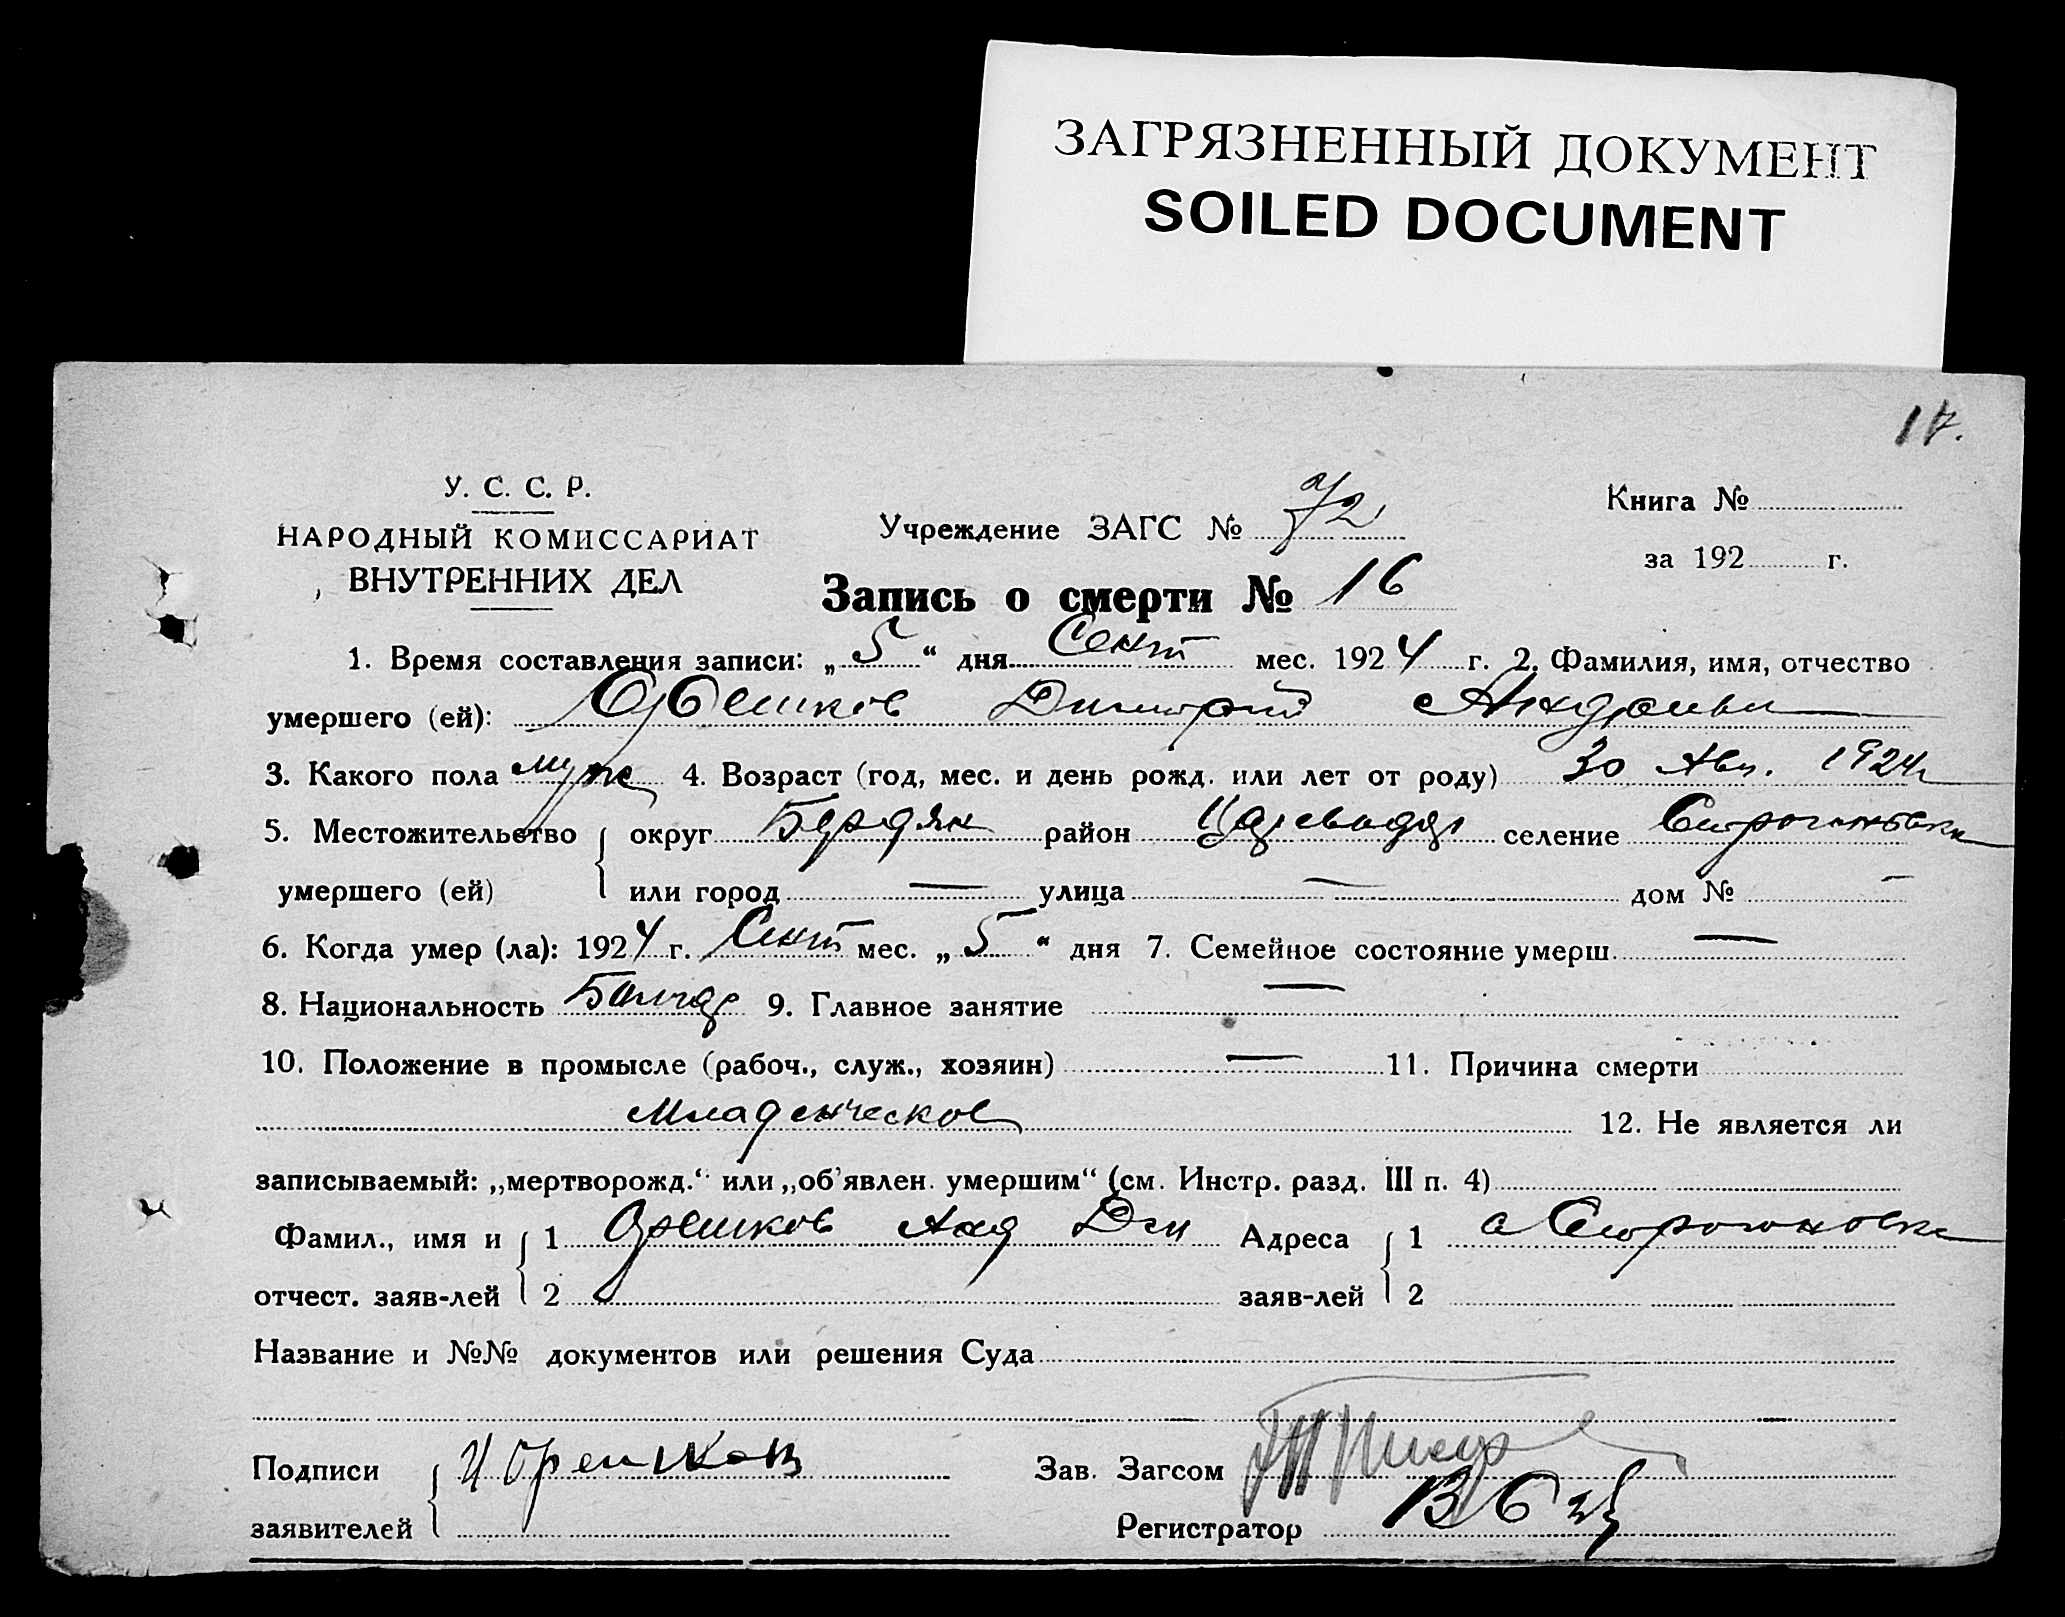 ЗАГРЯЗНЕННЫЙ ДОКУМЕНТ
SOILED DOCUMENT
17.
У. С. С. Р.
НАРОДНЫЙ КОМИССАРИАТ
ВНУТРЕННИХ ДЕЛ
Учреждение ЗАГС № 72
Книга №
за 192 г.
Запись о смерти № 16
1. Время составления записи: „5“ дня Сент мес. 1924 г. 2. Фамилия, имя, отчество
умершего (ей): Димитрий Андреев
3. Какого пола муж 4. Возраст (год, мес. и день рожд. или лет от роду) 30 Авг. 1924 г
5. Местожительство округ Бердян район Царевода селение Строгановка
умершего (ей) или город — улица — дом № —
6. Когда умер (ла): 1924 г. Сент мес. „5“ дня 7. Семейное состояние умерш. —
8. Национальность Болгар 9. Главное занятие —
10. Положение в промысле (рабоч., служ., хозяин) — 11. Причина смерти
Младенческое 12. Не является ли
записываемый: „мертворожд.“ или „об'явлен. умершим“ (см. Инстр. разд. III п. 4)
Фамил., имя и 1 Орешков Анд Дм Адреса 1 с Строгановка
отчест. заяв-лей 2 заяв-лей 2
Название и №№ документов или решения Суда
Подписи Орешков Зав. Загсом
заявителей Регистратор